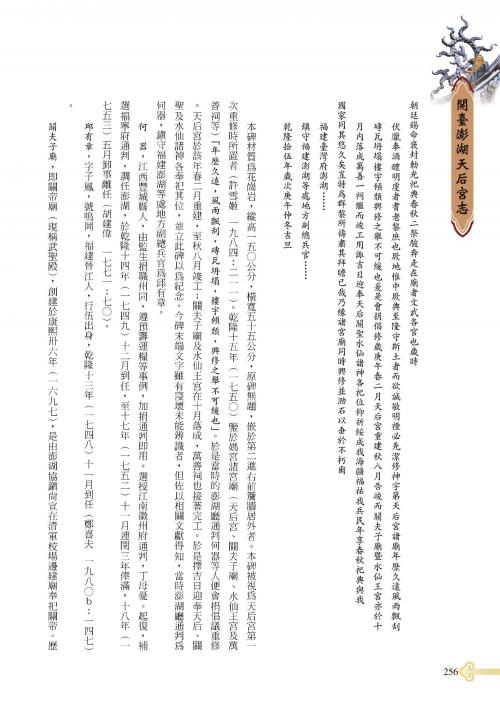 開臺澎湖天后宮志
朝廷錫命褒封勅光祀典春秋二祭駿奔走在廟者文武各官也歲時
伏臘奉酒醴明虔者耆老黎庶也厥地惟中厥典至隆守斯土者而欲誠敬明禋必先潔修神宇第天后宮諸廟年歷久遠風雨飄刮
磚瓦坍塌樓宇傾頹興修之舉不可緩也爰是會捐倡修歲庚午春二月天后宮重建秋八月告竣而關夫子廟暨水仙王宮亦於十
月內落成萬善一祠繼而竣工用諏吉日迎奉天后關聖水仙諸神各祀位仰祈綏成我海疆福祐我兵民年享春秋祀典與我
國家同其悠久矣豈特為群黎所待肅其拜瞻已哉乃緣諸宮廟同時興修並泐石以垂於不朽爾
福建臺灣府澎湖……
鎮守福建澎湖等處地方副總兵官……
乾隆拾伍年歲次庚午仲冬吉旦
本碑材質為花崗岩，縱高一五〇公分，橫寬五十五公分，原碑無題，嵌於第二進右前簷牆居外者。本碑被視為天后宮第一
次重修時所置者（許雪姬　一九八四：二一一）。乾隆十五年（一七五〇）鑒於媽宮諸宮廟（天后宮、關夫子廟、水仙王宮及萬
善祠等）「年歷久遠，風雨飄刮，磚瓦坍塌，樓宇傾頹，興修之舉不可緩也」。於是當時的澎湖廳通判何器等人便會捐倡議重修
。天后宮於該年春二月重建，至秋八月竣工；關夫子廟及水仙王宮在十月落成，萬善祠也接著完工。於是擇吉日迎奉天后、關
聖及水仙諸神各奉祀其位，並立此碑以為紀念。今碑末端文字雖有漫壞未能辨識者，但佐以相關文獻得知，當時澎湖廳通判為
何器，鎮守福建澎湖等處地方副總兵官為邱有章。
何　器，江西豐城縣人，由監生捐職州同，遵預籌運糧等事例，加捐通判即用。選授江南徽州府通判，丁母憂。起復，補
選福寧府通判，調任澎湖，於乾隆十四年（一七四九）十二月到任，至十七年（一七五二）十一月連閏三年俸滿，十八年（一
七五三）五月卸事離任（胡建偉　一七七一：七〇）。
邱有章，字子鳳，號鳴岡，福建晉江人，行伍出身，乾隆十三年（一七四八）十一月到任（鄭喜夫　一九八〇b：一四七）
。
關夫子廟，即關帝廟（現稱武聖殿），創建於康熙卅六年（一六九七），是由澎湖協鎮尚宣在清軍校場邊建廟奉祀關帝。歷
256